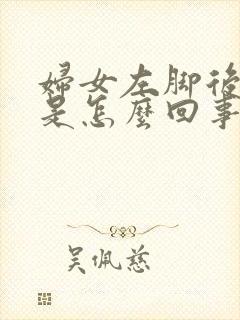 婦女左脚後
是怎麽回事
吴佩慈